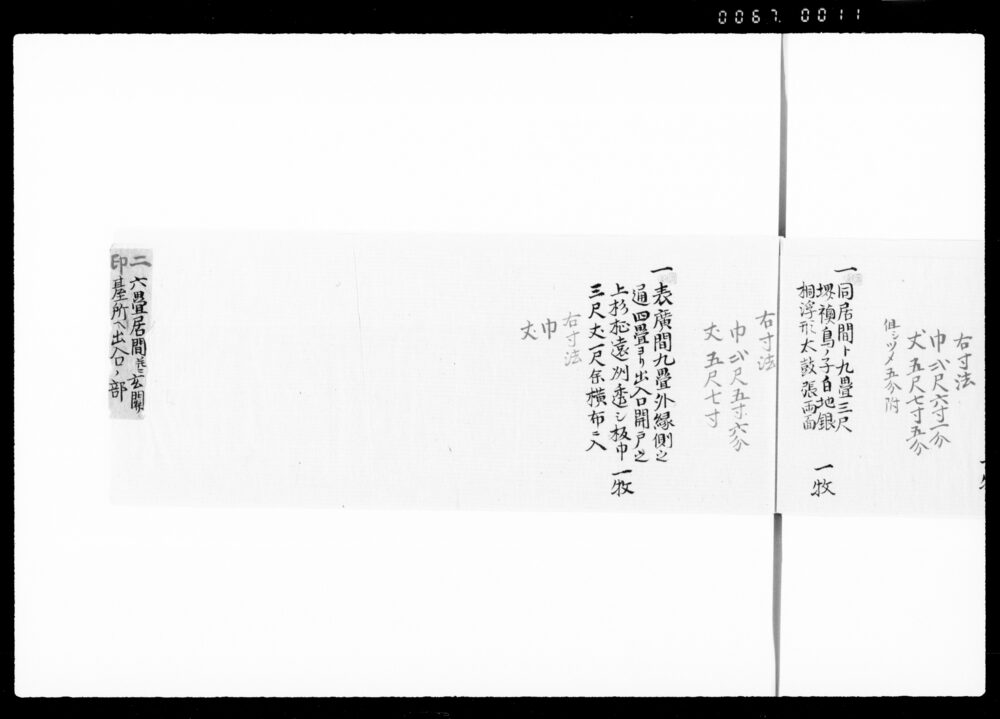 0067.0011
右寸法
巾 弐尺六寸一分
丈 五尺七寸五分
但シツメ五分附
一同居間ト九畳三尺
堺襖鳥ノ子白地銀
桐浮形太鼓張両面
一牧
右寸法
巾 弐尺五寸六分
丈 五尺七寸
一表廣間九畳外縁側之
通四畳ヨリ出入口開戸之
上杉柾遠州透シ板巾
三尺丈一尺余横布ニ入
一牧
右寸法
巾
丈
二印
六畳居間並ニ玄関
䑓所ヘ出入口ノ部